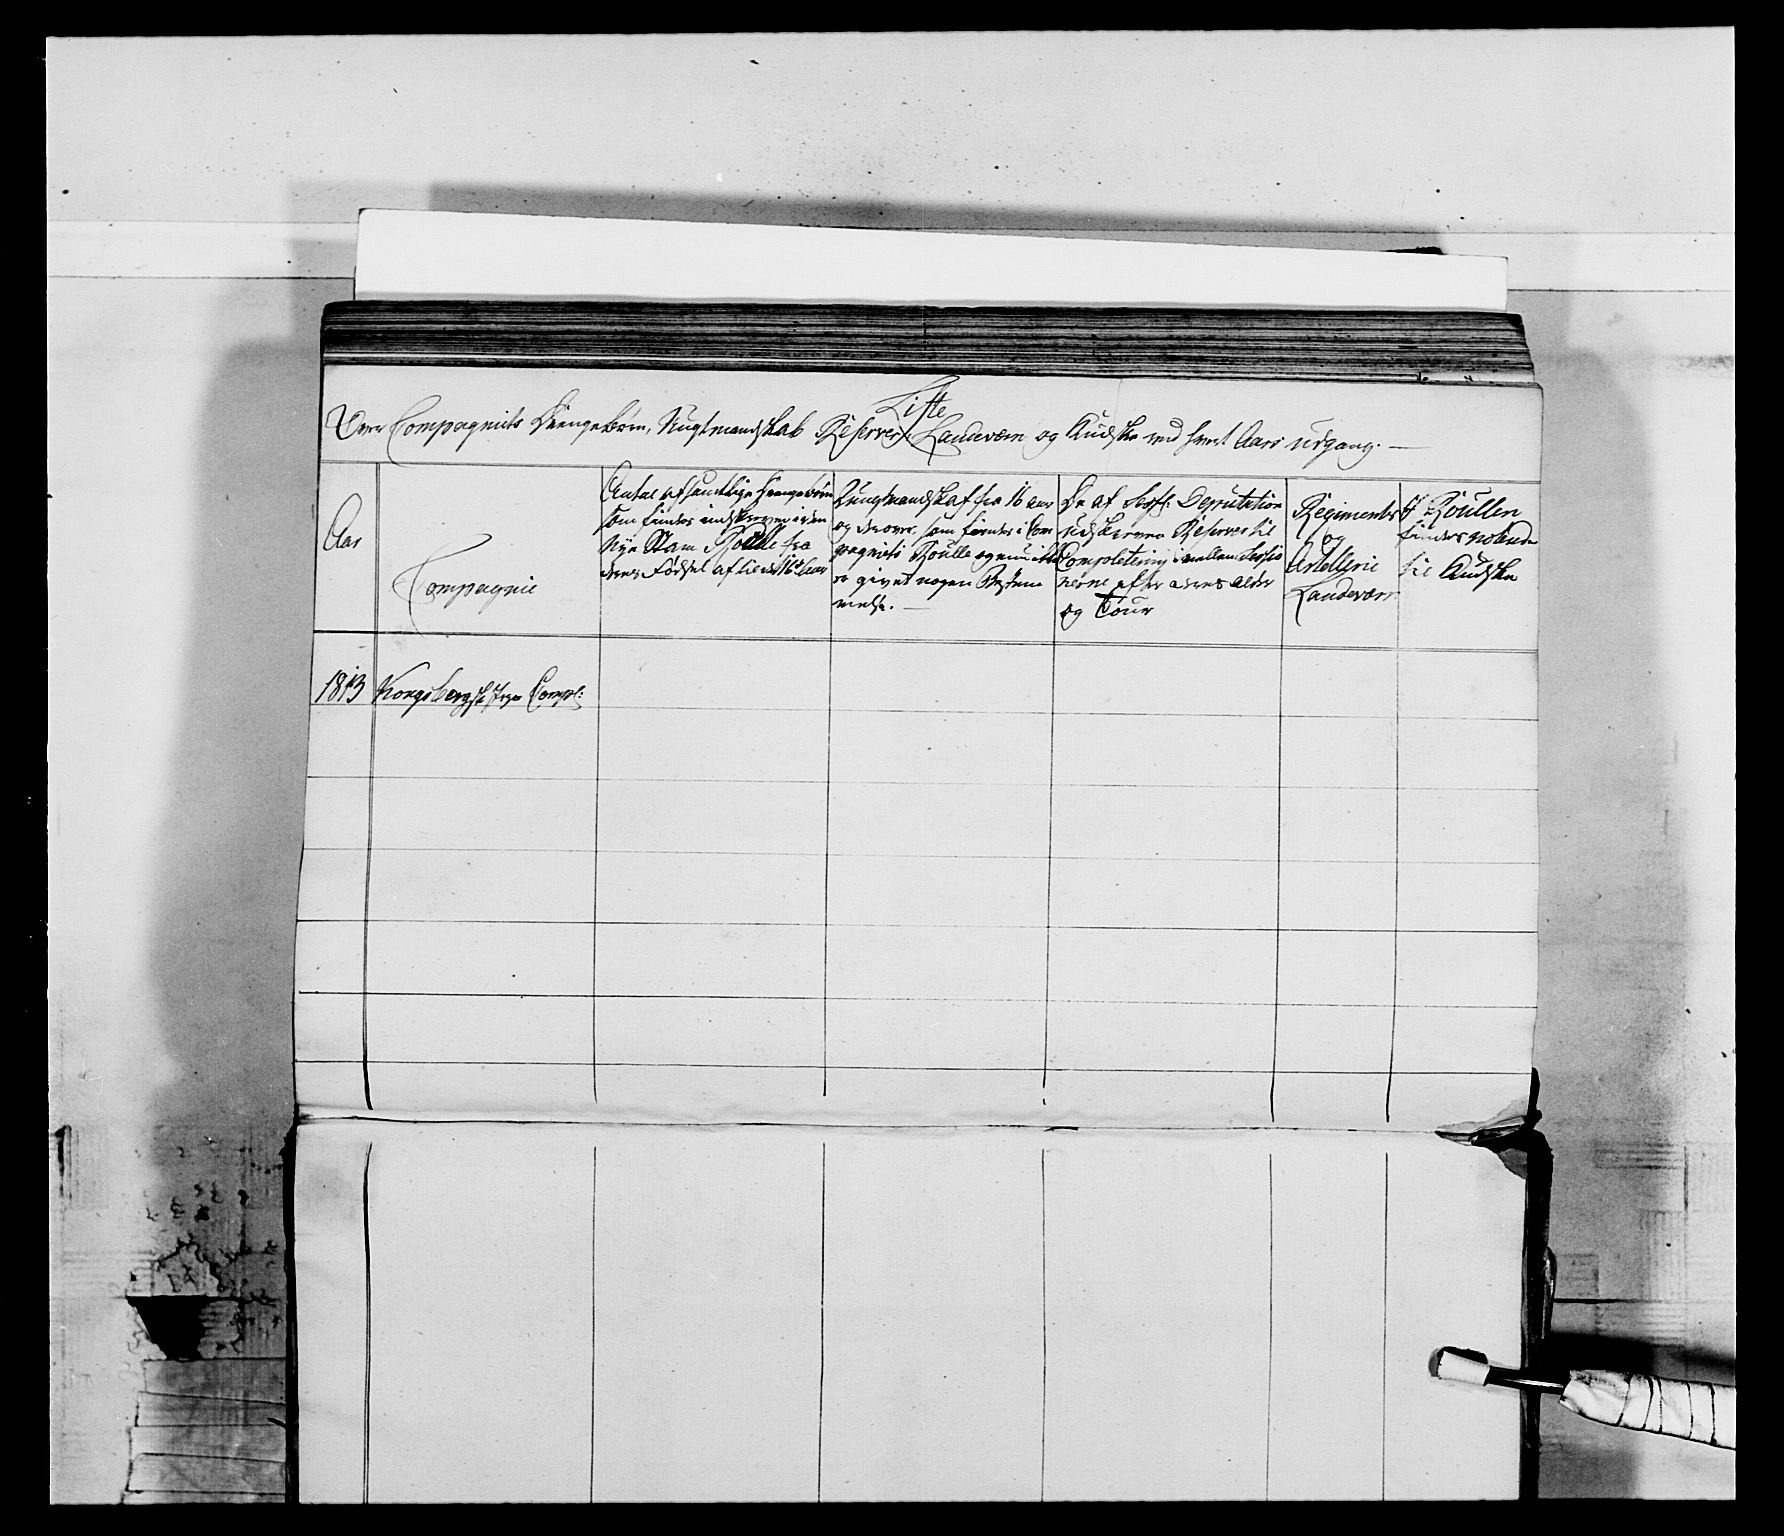 Liste
Over Compagniets Drengebørn, Ungtmandskab Reserver Landeværn og Kudske ved hvert Aars udgang. —
Aar
Compagnie
Antal af samtlige Drengebørn
som findes indskreven i den
Nye Stam Roulle fra
deres Fødsel af til det 16de Aar
Ungtmandskab fra 16 aar
og derover, som findes i Com
pagniets Roulle og enu ikke
er givet nogen Bestem
melse. —
De af Sess: Deputation
udskrevne Reserver til
Completering imellem Sessio
nerne efter deres alder
og Tour
Regiments
og
Artellerie
Landeværn
I Roullen
findes noterede
til Kudske
1813 Kongsbergske Compl: